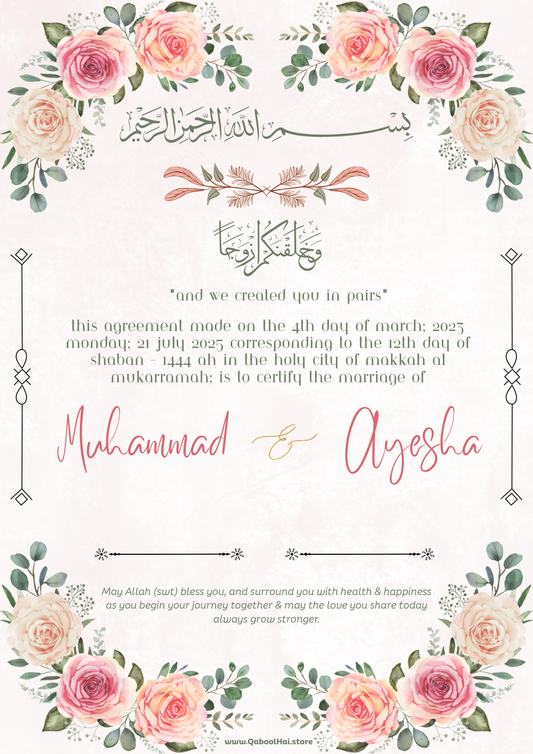 بسم الله الرحمن الرحيم
وَخَلَقْنَكُمْ أَزْوَجًا
"and we created you in pairs"
this agreement made on the 4th day of march; 2023
monday; 21 july 2023 corresponding to the 12th day of
shaban - 1444 ah in the holy city of makkah al
mukarramah; is to certify the marriage of
Muhammad & Ayesha
May Allah (swt) bless you, and surround you with health & happiness
as you begin your journey together & may the love you share today
always grow stronger.
www.QaboolHai.store